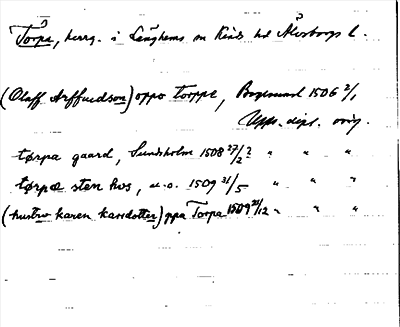 Torpa, herrg. i Länghems sn Kinds hd Älvsborgs l.
(Olaff Arffuedson) oppo torppe, Bogesund 1506 2/1
Upps. dipl. orig.
tørpa gaard, Sundsholm 1508 27/2? " " "
tørpæ sten hws, u.o. 1509 31/5 " " "
(hustrv karen karlsdotter) ppa Torpa 1509 21/12 " " "